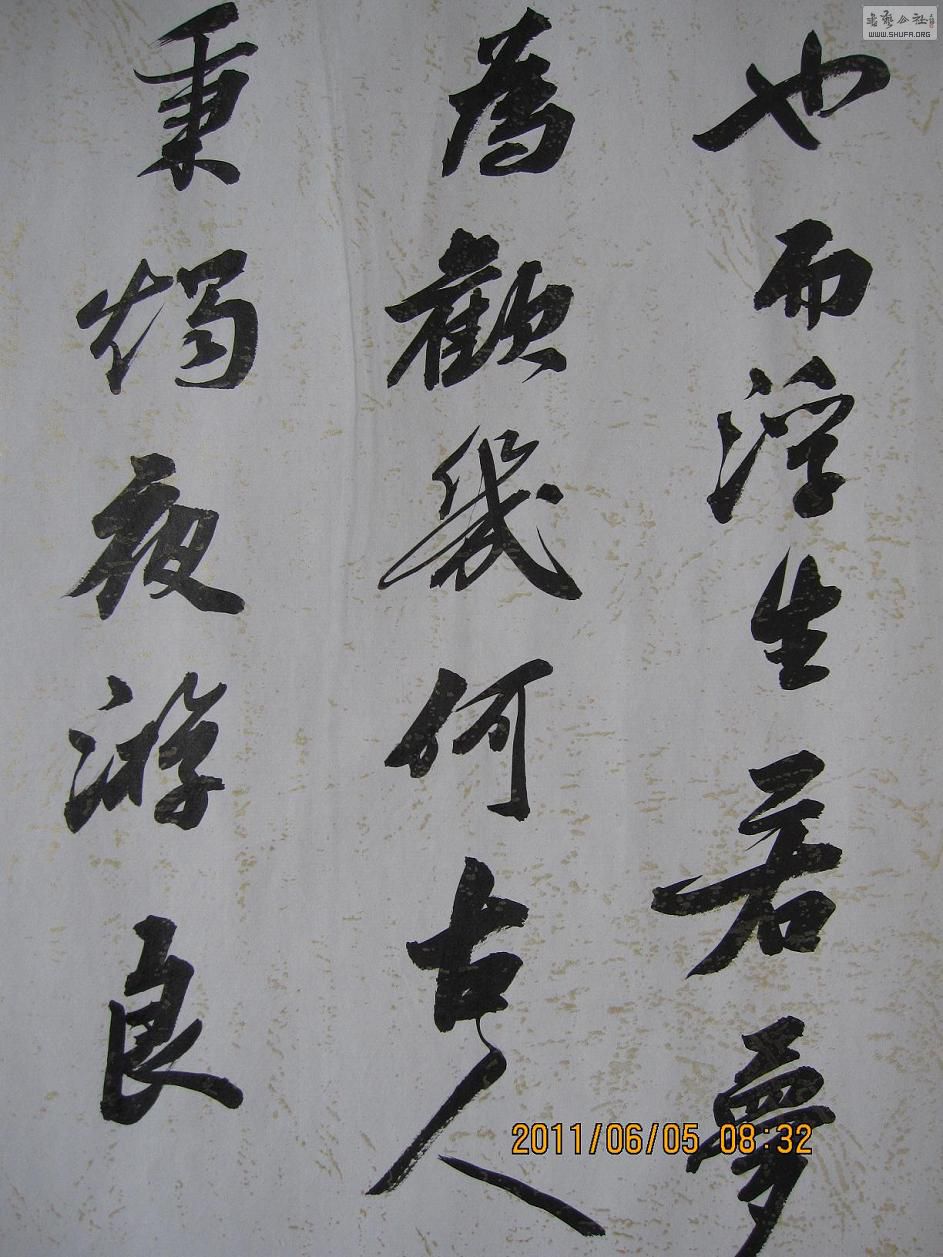 也而浮生若夢
為歡幾何古人
秉燭夜游良
書藝公社
WWW.SHUFA.ORG
2011/06/05 08:32